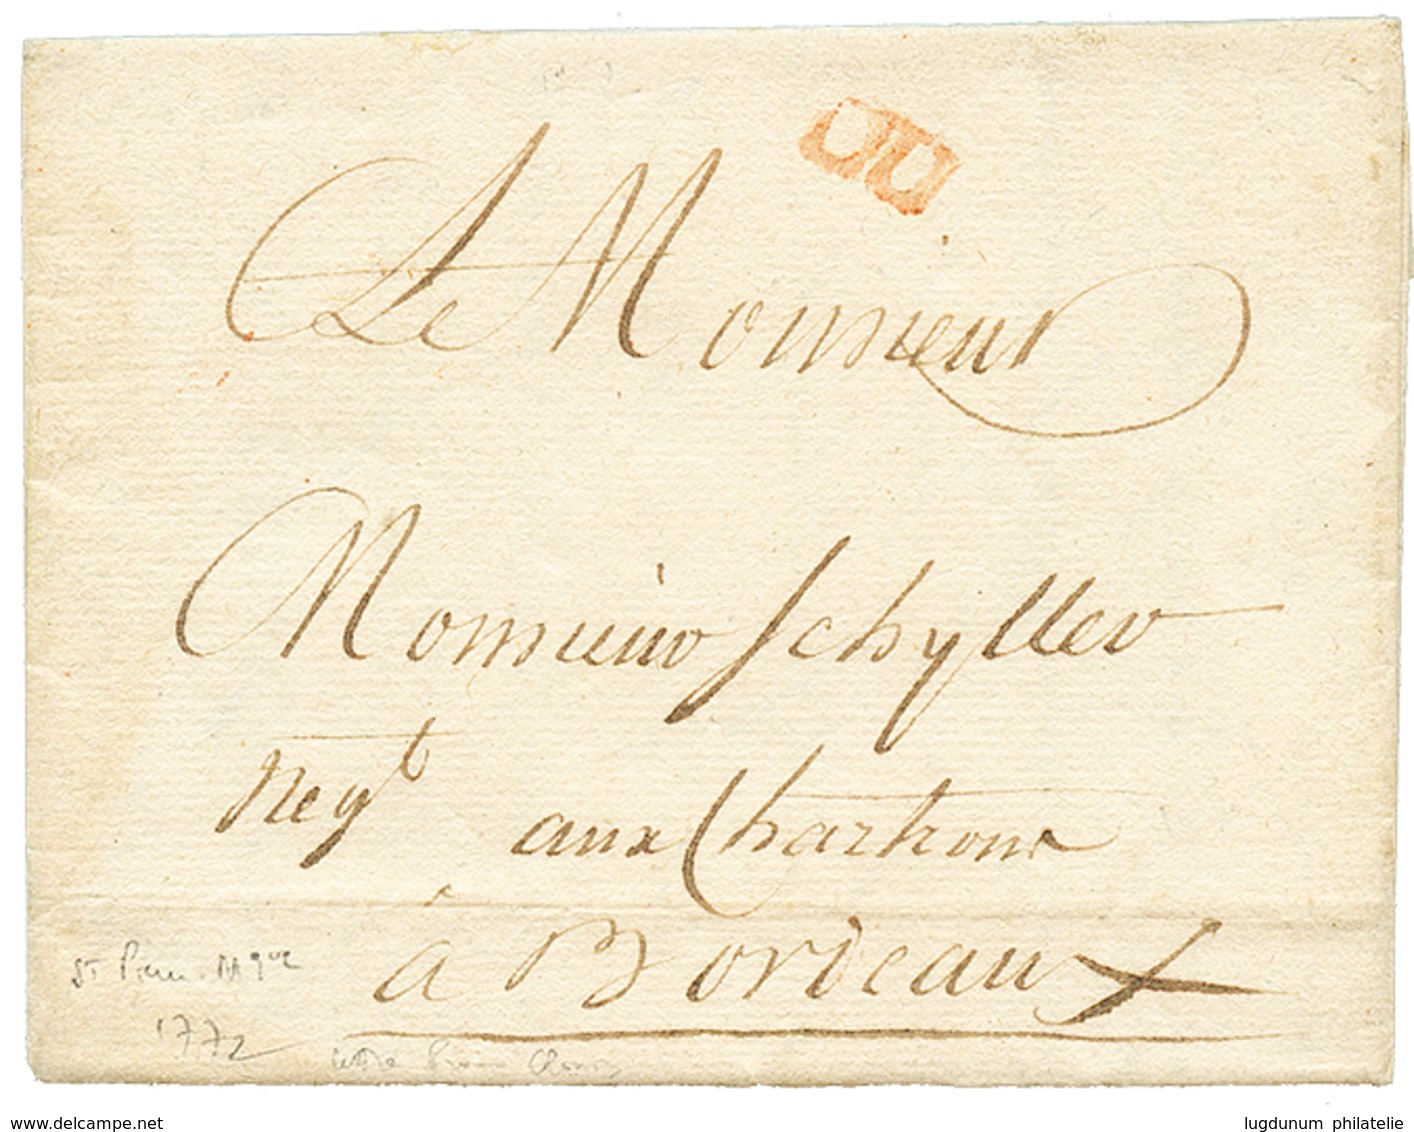 DU
A Monsieur
Monsieur Schÿller
Neg.t aux Chartrons
à Bordeaux
St Pierre Mque
1772
www.delcampe.net
lugdunum philatelie